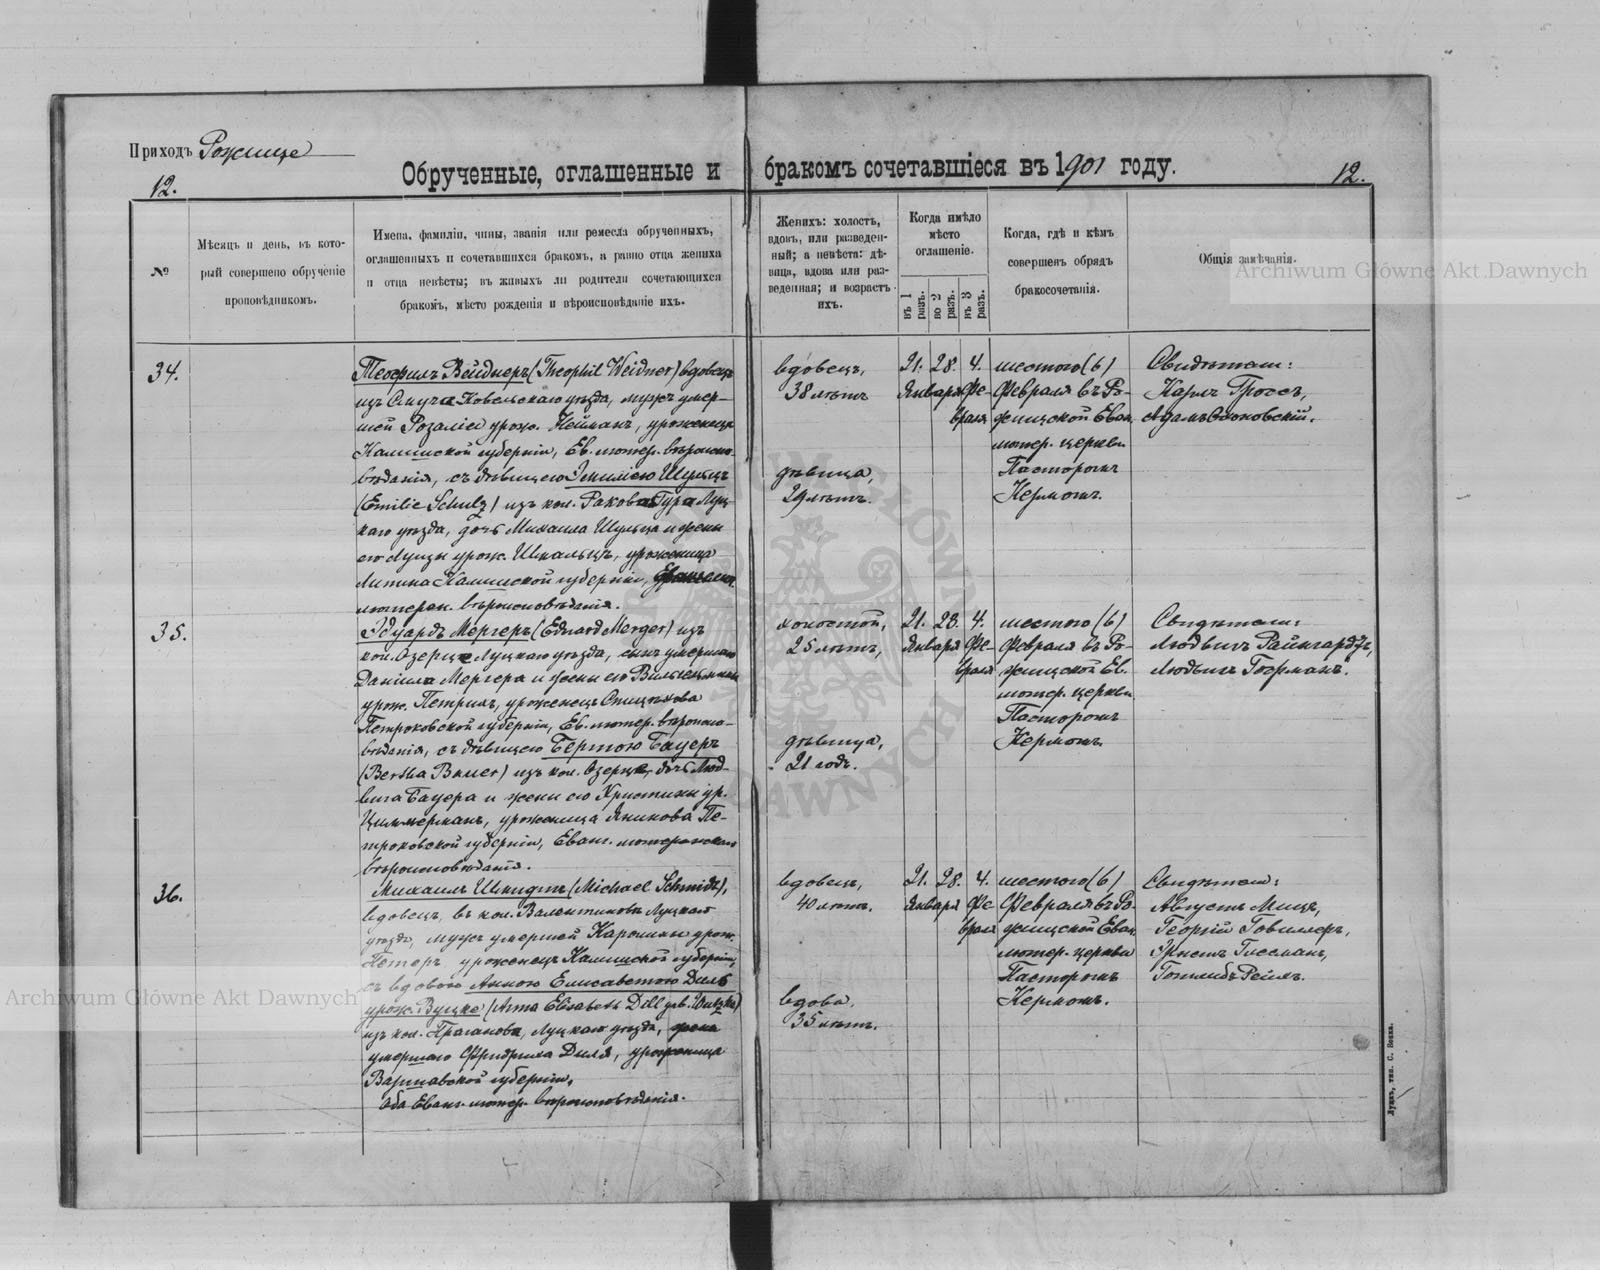 Приходъ Рожище
12.
Обрученные, оглашенные и бракомъ сочетавшіеся въ 1901 году.
12.
№
Мѣсяцъ и день, въ кото-
рый совершено обрученіе
проповѣдникомъ.
Имена, фамиліи, чины, званія или ремесла обрученныхъ,
оглашенныхъ и сочетавшихся бракомъ, а равно отца жениха
и отца невѣсты; въ живыхъ ли родители сочетающихся
бракомъ, мѣсто рожденія и вѣроисповѣданіе ихъ.
Женихъ: холостъ,
вдовъ, или разведен-
ный; а невѣста: дѣ-
вица, вдова или раз-
веденная; и возрастъ
ихъ.
Когда имѣло
мѣсто
оглашеніе.
въ 1 разъ.
во 2 разъ.
въ 3 разъ.
Когда, гдѣ и кѣмъ
совершенъ обрядъ
бракосочетанія.
Общія замѣчанія.
34.
Теофилъ Вейднеръ (Theophil Weidner) вдовецъ
изъ Ковельскаго уѣзда, мужъ умер-
шей Розаліи урож. Нейманъ, уроженецъ
Калишской губерніи, Ев. лютер. вѣроиспо-
вѣданія, съ дѣвицею Эмиліею Шульцъ
(Emilie Schulz) изъ кол. Гура Луц-
каго уѣзда, дочь Михаила Шульца и жены
его Луизы урож. уроженица
Калишской губерніи,
лютеран. вѣроисповѣданія.
вдовецъ,
38 лѣтъ
дѣвица,
29 лѣтъ.
21. 28. 4.
Января Фе-
враля
шестого (6)
Февраля въ Ро-
жищской Еван.
лютер. церкви
Пасторомъ
Кермомъ.
Свидѣтели:
Карлъ Гроссъ,
Адамъ
35.
Эдуардъ Мергеръ (Eduard Merger) изъ
кол. Озерце Луцкаго уѣзда, сынъ умершаго
Даніила Мергера и жены его Вильгельмины
урож. Петрихъ, уроженецъ
Петроковской губерніи, Ев. лютер. вѣроиспо-
вѣданія, съ дѣвицею Бертою Бауеръ
(Bertha Bauer) изъ кол. Озерце, дочь Люд-
вига Бауера и жены его Христины ур.
Циммерманъ, уроженица Яникова Пе-
троковской губерніи, Еванг. лютеранскаго
вѣроисповѣданія.
холостой,
25 лѣтъ,
дѣвица,
21 годъ.
21. 28. 4.
Января Фе-
враля
шестого (6)
Февраля въ Ро-
жищской Ев.
лютер. церкви
Пасторомъ
Кермомъ.
Свидѣтели:
Людвигъ Райнгардтъ,
Людвигъ Гоерманъ.
36.
Михаилъ Шмидтъ (Michael Schmidt),
вдовецъ, въ кол. Валентиновъ Луцкаго
уѣзда, мужъ умершей Каролины урож.
Петеръ уроженецъ Калишской губерніи,
съ вдовою Анною Елисаветою Диль
урож. Вуцке (Anna Elisabeth Dill geb. Wutzke)
изъ кол. Луцкаго уѣзда, жена
умершаго Фридриха Диля, уроженица
Варшавской губерніи,
Оба Еванг. лютер. вѣроисповѣданія.
вдовецъ,
40 лѣтъ.
вдова.
35 лѣтъ.
21. 28. 4.
Января Фе-
враля
шестого (6)
Февраля въ Ро-
жищской Еван.
лютер. церкви
Пасторомъ
Кермомъ.
Свидѣтели:
Августъ Мицъ,
Георгій Говиллеръ,
Эрнстъ Гиссманъ,
Готлибъ Рейхъ.
Луцкъ, тип. С. Бокка.
Archiwum Główne Akt Dawnych
Archiwum Główne Akt Dawnych